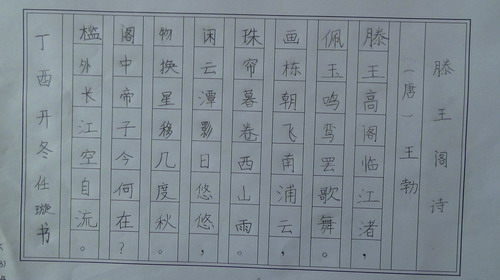 滕王阁诗
（唐）王勃
滕王高阁临江渚，
佩玉鸣鸾罢歌舞。
画栋朝飞南浦云，
珠帘暮卷西山雨。
闲云潭影日悠悠，
物换星移几度秋。
阁中帝子今何在？
槛外长江空自流。
丁酉开冬任璇书